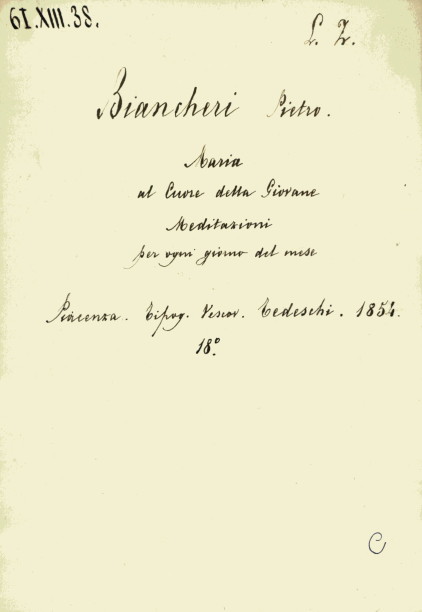 61.XIII.38.
L. Z.
Biancheri Pietro.
Maria
al Cuore della Giovane
Meditazioni
per ogni giorno del mese
Piacenza. Tipog. Vescov. Tedeschi. 1854.
18º.
C